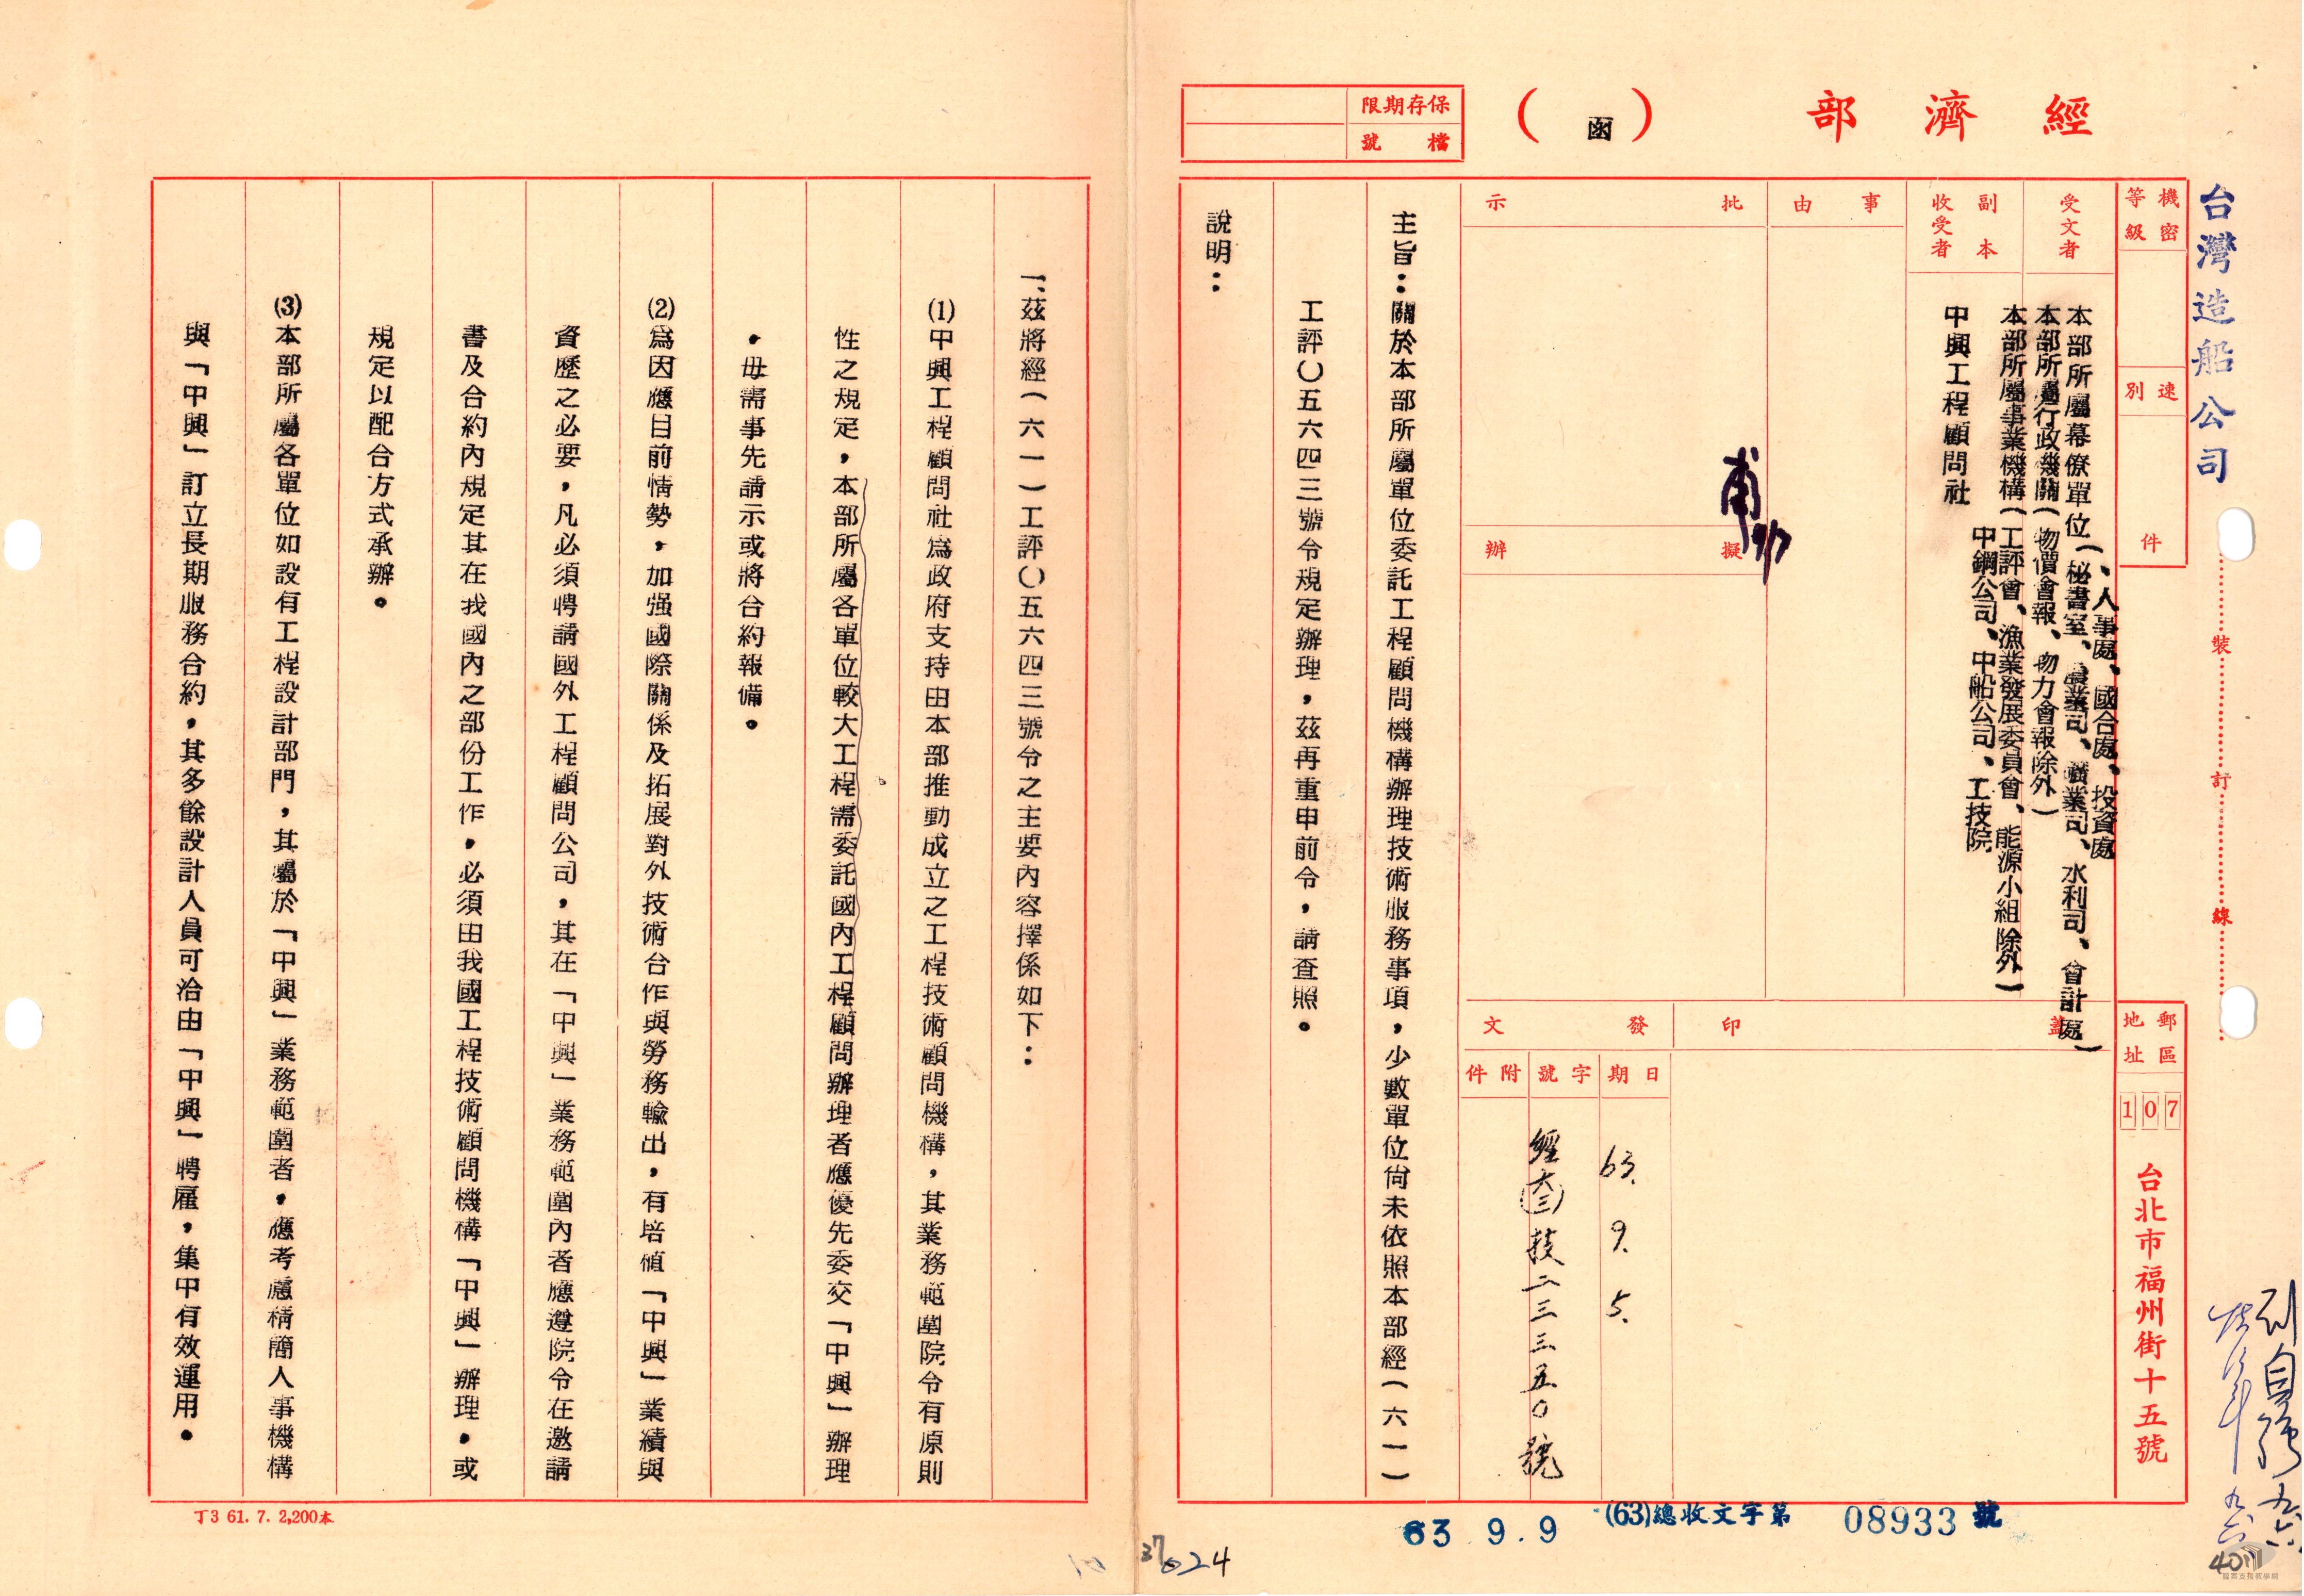 經濟部
（函）
保存期限
檔號
台灣造船公司
機密等級
速別
件
受文者
本部所屬幕僚單位（秘書室、農業司、礦業司、水利司、會計處）
、人事處、國合處、投資處
本部所屬行政機關（物價會報、物力會報除外）
本部所屬事業機構（工評會、漁業發展委員會、能源小組除外）
中鋼公司、中船公司、工技院
副本收受者
中興工程顧問社
事由
批示
擬辦
蓋印
發文
日期
63. 9. 5.
字號
經(六三)技二三三五〇號
附件
郵區
107
地址
台北市福州街十五號
裝
訂
線
主旨：關於本部所屬單位委託工程顧問機構辦理技術服務事項，少數單位尚未依照本部經(六一)
工評〇五六四三號令規定辦理，茲再重申前令，請查照。
說明：
一、茲將經(六一)工評〇五六四三號令之主要內容擇係如下：
(1)中興工程顧問社為政府支持由本部推動成立之工程技術顧問機構，其業務範圍院令有原則
性之規定，本部所屬各單位較大工程需委託國內工程顧問辦理者應優先委交「中興」辦理
，毋需事先請示或將合約報備。
(2)為因應目前情勢，加强國際關係及拓展對外技術合作與勞務輸出，有培植「中興」業績與
資歷之必要，凡必須聘請國外工程顧問公司，其在「中興」業務範圍內者應遵院令在邀請
書及合約內規定其在我國內之部份工作，必須由我國工程技術顧問機構「中興」辦理，或
規定以配合方式承辦。
(3)本部所屬各單位如設有工程設計部門，其屬於「中興」業務範圍者，應考慮精簡人事機構
與「中興」訂立長期服務合約，其多餘設計人員可洽由「中興」聘雇，集中有效運用。
丁3 61. 7. 2,200本
63 9. 9
(63)總收文字第 08933 號
024
401